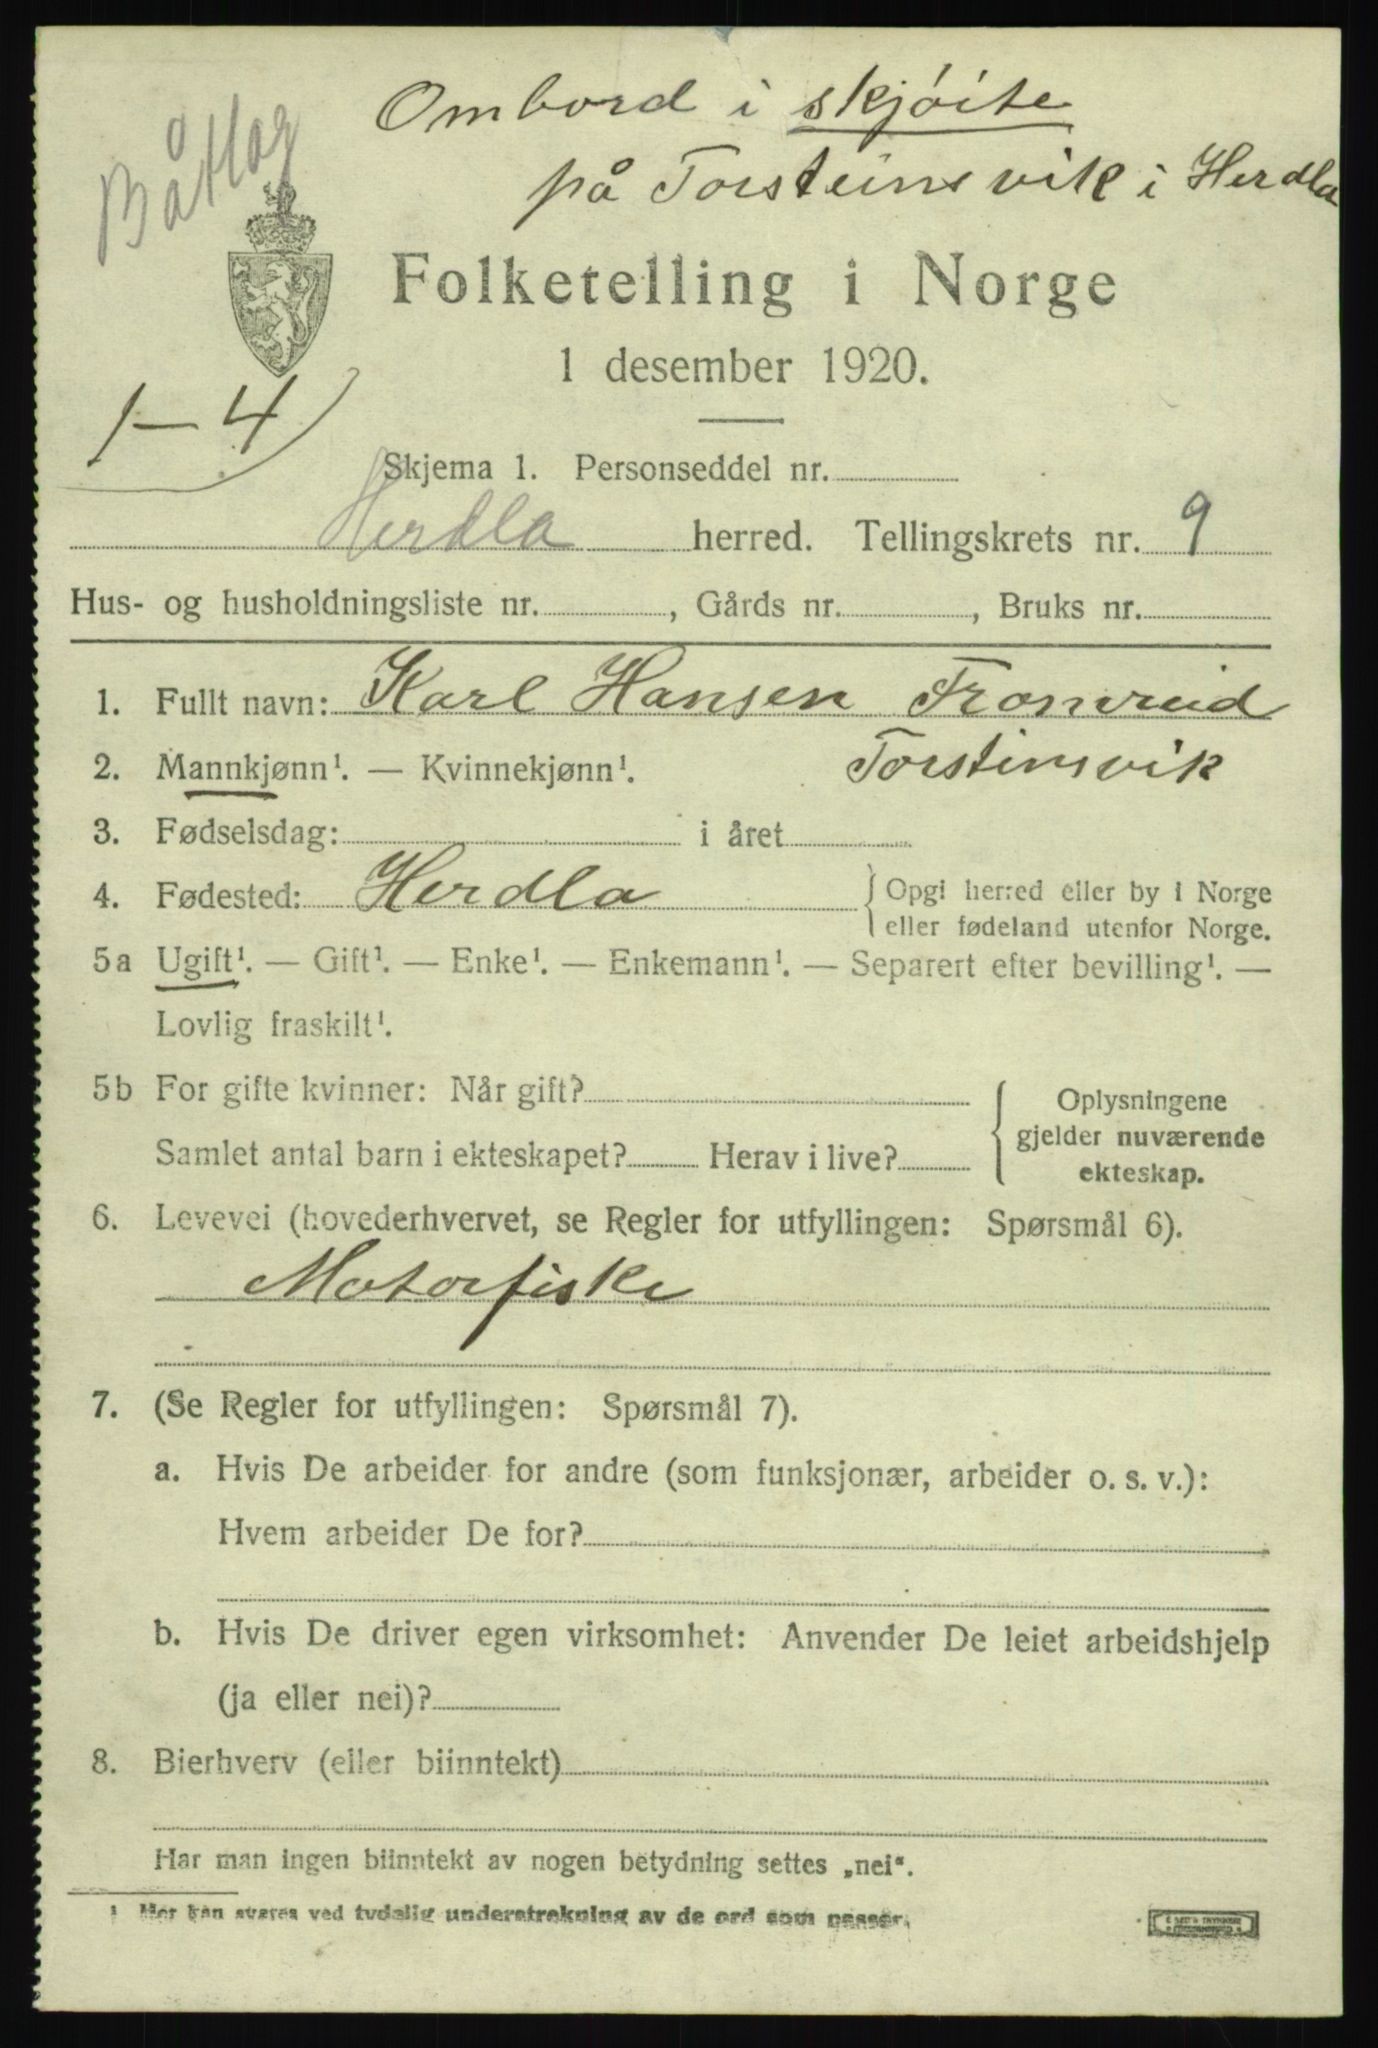 Ombord i skjöite
på Torsteinsvik i Herdla
Båtlag
Folketelling i Norge
1 desember 1920.
1-4)
Skjema 1. Personseddel nr.
Herdla herred. Tellingskrets nr. 9
Hus- og husholdningsliste nr. , Gårds nr. , Bruks nr.
1. Fullt navn: Karl Hansen Fromreid
2. Mannkjønn¹. — Kvinnekjønn¹. Torstinsvik
3. Fødselsdag: i året
4. Fødested: Herdla Opgi herred eller by i Norge
eller fødeland utenfor Norge.
5a Ugift¹. — Gift¹. — Enke¹. — Enkemann¹. — Separert efter bevilling¹. —
Lovlig fraskilt¹.
5b For gifte kvinner: Når gift?
Samlet antal barn i ekteskapet? Herav i live?
Oplysningene
gjelder nuværende
ekteskap.
6. Levevei (hovederhvervet, se Regler for utfyllingen: Spørsmål 6).
Motorfiske
7. (Se Regler for utfyllingen: Spørsmål 7).
a. Hvis De arbeider for andre (som funksjonær, arbeider o. s. v.):
Hvem arbeider De for?
b. Hvis De driver egen virksomhet: Anvender De leiet arbeidshjelp
(ja eller nei)?
8. Bierhverv (eller biinntekt)
Har man ingen biinntekt av nogen betydning settes „nei".
1 Her kan svares ved tydelig understrekning av de ord som passer.